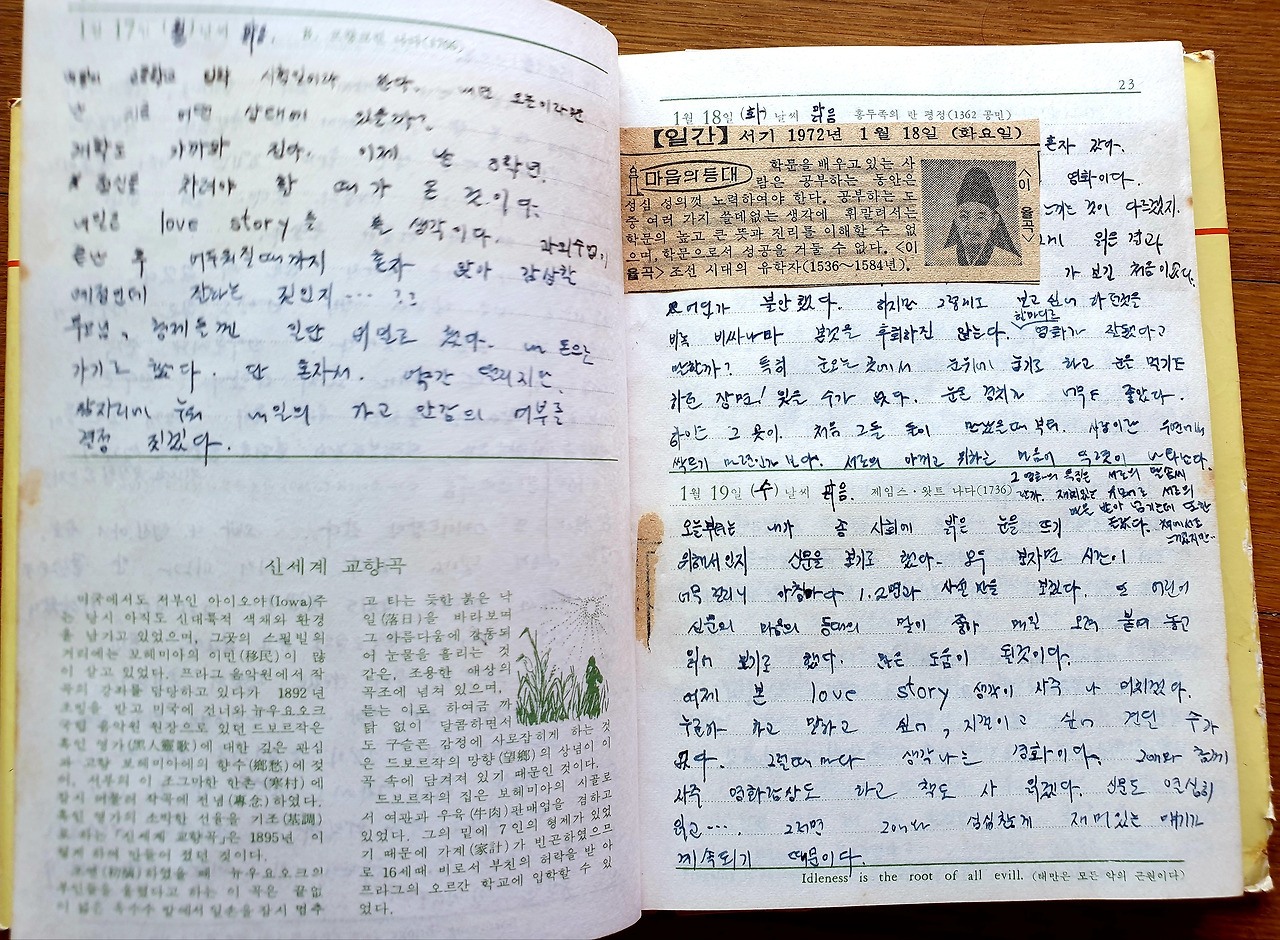 1월 17일 (월) 날씨 맑음. B. 프랭클린 나다(1706)
입학 시험일이라 한다. 내년 오늘이라면
난 지금 어떤 상태에 있을까?
개학도 가까와 진다. 이제 난 3학년.
차려야 할 때가 온 것이다.
내일은 love story를 볼 생각이다. 과외수업이
끝난 후 어두워질때까지 혼자 앉아 감상할
예정인데 잘하는 짓인지… ??
부모님, 형제들껜 일단 비밀로 했다. 내 돈으로
가기로 했다. 단 혼자서. 약간 떨리지만.
잠자리에 누워 내일의 가고 안감의 여부를
결정 짓겠다.
신세계 교향곡
미국에서도 서부인 아이오와(Iowa)주
는 당시 아직도 신대륙적 색채와 환경
을 남기고 있었으며, 그곳의 스필빌의
거리에는 보헤미아의 이민(移民)이 많
이 살고 있었다. 프라그 음악원에서 작
곡의 강좌를 담당하고 있다가 1892년
초빙을 받고 미국에 건너와 뉴우요오크
국립 음악원 원장으로 있던 드보르작은
흑인 영가(黑人靈歌)에 대한 깊은 관심
과 고향 보헤미아에의 향수(鄕愁)에 젖
어, 서부의 이 조그마한 한촌(寒村)에
잠시 머물러 작곡에 전념(專念)하였다.
흑인 영가의 소박한 선율을 기조(基調)
로 하는 「신세계 교향곡」은 1895년 이
렇게 하여 만들어 졌던 것이다.
초연(初演)하였을 때 뉴우요오크의
부인들을 울렸다고 하는 이 곡은 끝없
이 넓은 옥수수 밭에서 일손을 잠시 멈추
고 타는 듯한 붉은 낙
일(落日)을 바라보며
그 아름다움에 감동되
어 눈물을 흘리는 것
같은, 조용한 애상의
곡조에 넘쳐 있으며,
듣는 이로 하여금 까
닭 없이 달콤하면서
도 구슬픈 감정에 사로잡히게 하는 것
은 드보르작의 망향(望鄕)의 상념이 이
곡 속에 담겨져 있기 때문인 것이다.
드보르작의 집은 보헤미아의 시골로
서 여관과 우육(牛肉)판매업을 겸하고
있었다. 그의 밑에 7인의 형제가 있었
기 때문에 가계(家計)가 빈곤하였으므
로 16세때 비로서 부친의 허락을 받아
프라그의 오르간 학교에 입학할 수 있
었다.
23
1월 18일 (화) 날씨 맑음 홍두족의 반 평정(1362 공민)
【일간】 서기 1972년 1월 18일 (화요일)
마음의등대
학문을 배우고 있는 사
람은 공부하는 동안은
성심 성의껏 노력하여야 한다. 공부하는 도
중 여러 가지 쓸데없는 생각에 휘말려서는
학문의 높고 큰 뜻과 진리를 이해할 수 없
으며, 학문으로서 성공을 거둘 수 없다. <이
율곡> 조선 시대의 유학자(1536~1584년).
<이 율곡>
혼자 갔다.
영화이다.
느끼는 것이 다르겠지.
읽은 결과
가 보긴 처음이었다.
불안했다. 하지만 그렇게도 보고 싶어 하던것을
비록 비싸나마 본것을 후회하진 않는다. 한마디로 영화가 잘됐다고
말할까? 특히 눈오는 곳에서 눈위에 눕기도 하고 눈을 먹기도
하던 장면! 잊을 수가 없다. 눈온 경치가 너무도 좋았다.
하이든 그 곳이. 처음 그들 둘이 만났을때부터. 사랑이란 우연에서
싹트기 마련인가 보다. 서로의 아끼고 위하는 마음이 뚜렷이 나타난다.
1월 19일 (수) 날씨 맑음. 제임스·왓트 나다(1736)
그 영화의 특징은 서로의 말솜씨
오늘부터는 내가 좀 사회에 밝은 눈을 뜨기
위해서인지 신문을 보기로 했다. 모두 보자면 시간이
너무 걸리니 아침마다 1.2면과 사설만을 보겠다. 또 어린이
신문의 마음의 등대의 말이 좋아 매일 오려 붙여 놓고
읽어 보기로 했다. 많은 도움이 될것이다.
어제 본 love story 생각이 자꾸 나 미치겠다.
누구와 하고 말하고 싶어, 지껄이고 싶어 견딜 수가
없다. 그럴때마다 생각나는 경화이다. 그애와 함께
자주 영화감상도 하고 책도 사 읽겠다. 신문도 열심히
읽고…. 그러면 그애와 성심찮게 재미있는 얘기가
계속되기 때문이다.
Idleness is the root of all evill. (태만은 모든 악의 근원이다)